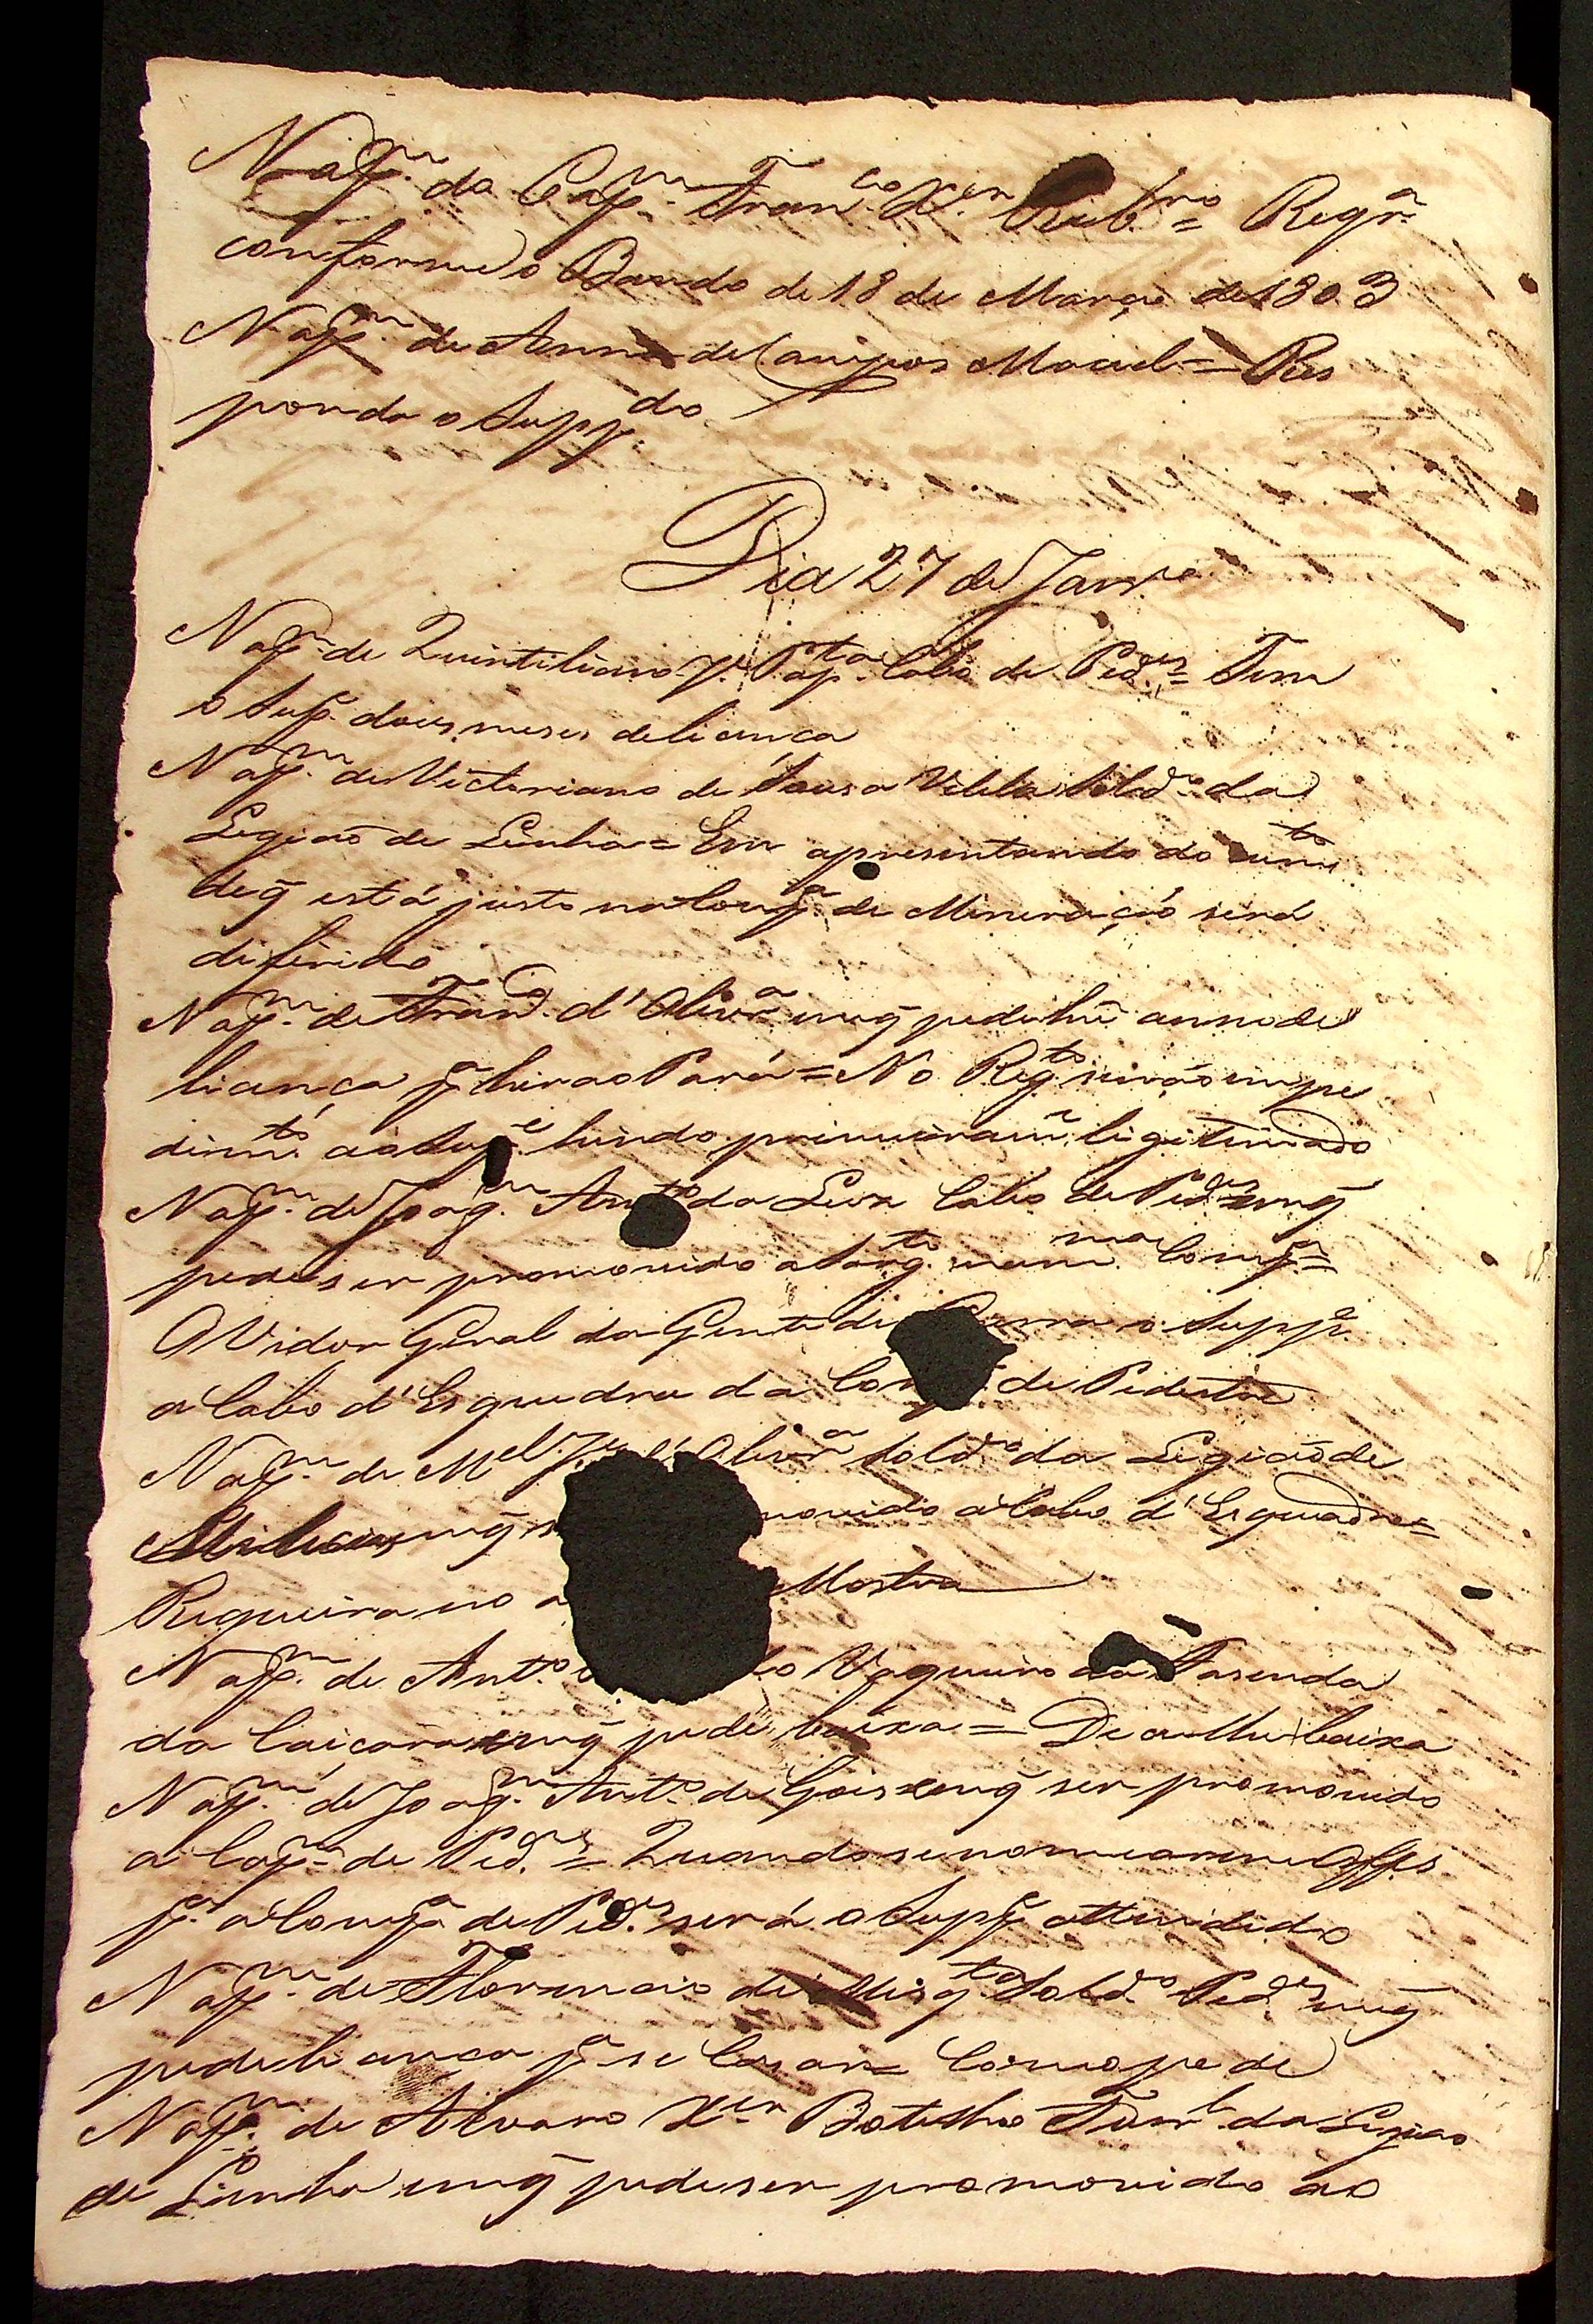 N apᵐ do Capᵐ Franᶜᵒ Xᵉʳ Ribʳᵒ = Regrᵃ
conforme o Bando de 18 de Março de 1803
N apᵐ de Anna de Campos Maciel = Res
ponda o Suppᵈᵒ
Dia 27 de Janrᵒ
N apᵐ de Quintiliano Jᵉ Baptᵃ Cabo de Pedᵉˢ = Tem
o Supᵉ dous mezes de licença
N apᵐ de Victoriano de Sousa Vilela Soldᵒ da
Legiaõ de Linha = Em apresentando do
de q̃ está justo na Compᵃ de Mineração será
diferido
N apᵐ de Franᶜᵒ d'Olivrᵃ em q̃ pede hũ anno de
licença pᵃ hir ao Pará = No Regᵗᵒ não impe
dimᵗᵒ ao Supᵉ hindo primeiramᵉ legitimado
N apᵐ de Joaqᵐ Antᵒ da Cabo de Pedᵉˢ em q̃
pede ser promovido a Sargᵗᵒ na mᵐᵃ Compᵃ =
O Vidor Geral da Gente de o Suppᵉ
a Cabo d'Esquadra da de Pedestre
N apᵐ de Mᵉˡ Jᵉ d'Olivrᵃ Soldᵒ da Legiaõ de
Milicias em q̃ movido a Cabo d'Esquadra =
Requeira no Mostra
N apᵐ de Antᵒ Vaqueiro da Fasenda
da Caiçara em q̃ pede baixa = De a lhe baixa
N apᵐ de Joaqᵐ Antᵒ de Gois em q̃ ser promovido
a Capᵐ de Pedᵉˢ = Quando se nomearem Offᵉˢ
pᵃ a Compᵃ de Pedᵉˢ será o Suppᵉ attendido
N apᵐ de de Mesqᵗᵃ Soldᵒ Pedᵉ em q̃
pede licença pᵃ se Casar = Como pede
N apᵐ de Alvaro Xᵉʳ Botelho Furrˡ da Legiao
de Linha em q̃ pede ser promovido ao